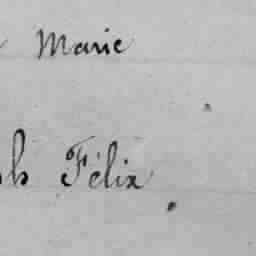 Marie
Félix